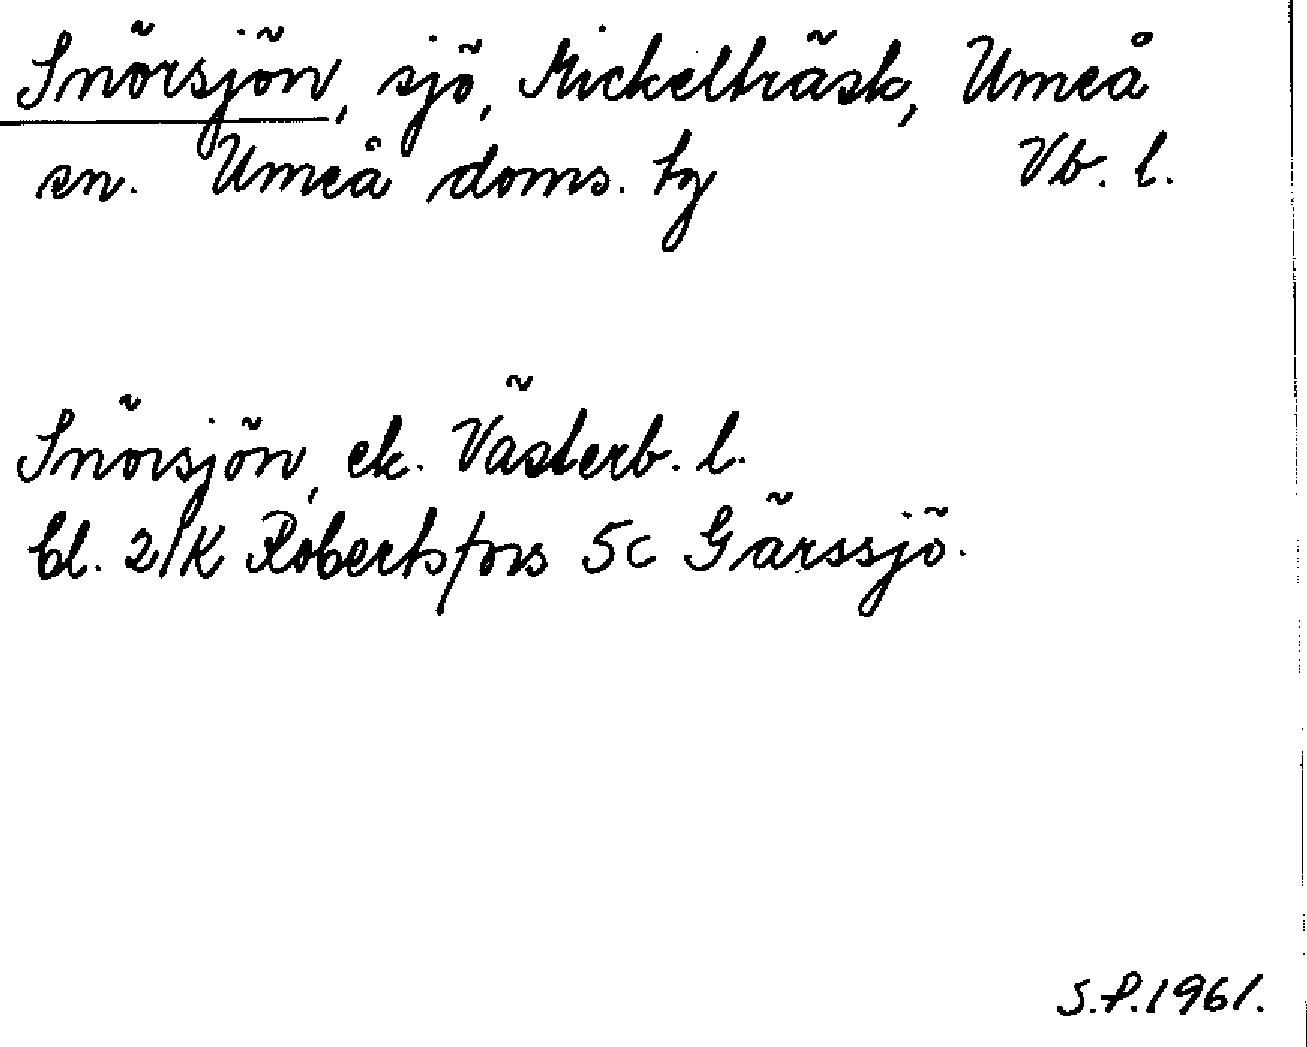 Snörsjön, sjö, Mickelträsk, Umeå
sn. Umeå doms. tg Vb. l.
Snörsjön, ek. Västerb. l.
bl. 21K Robertsfors 5c Gärssjö.
S.P.1961.